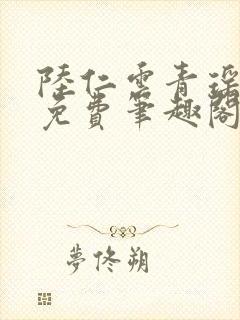 陸仁雲青瑤
免費筆趣閣
夢佟朔